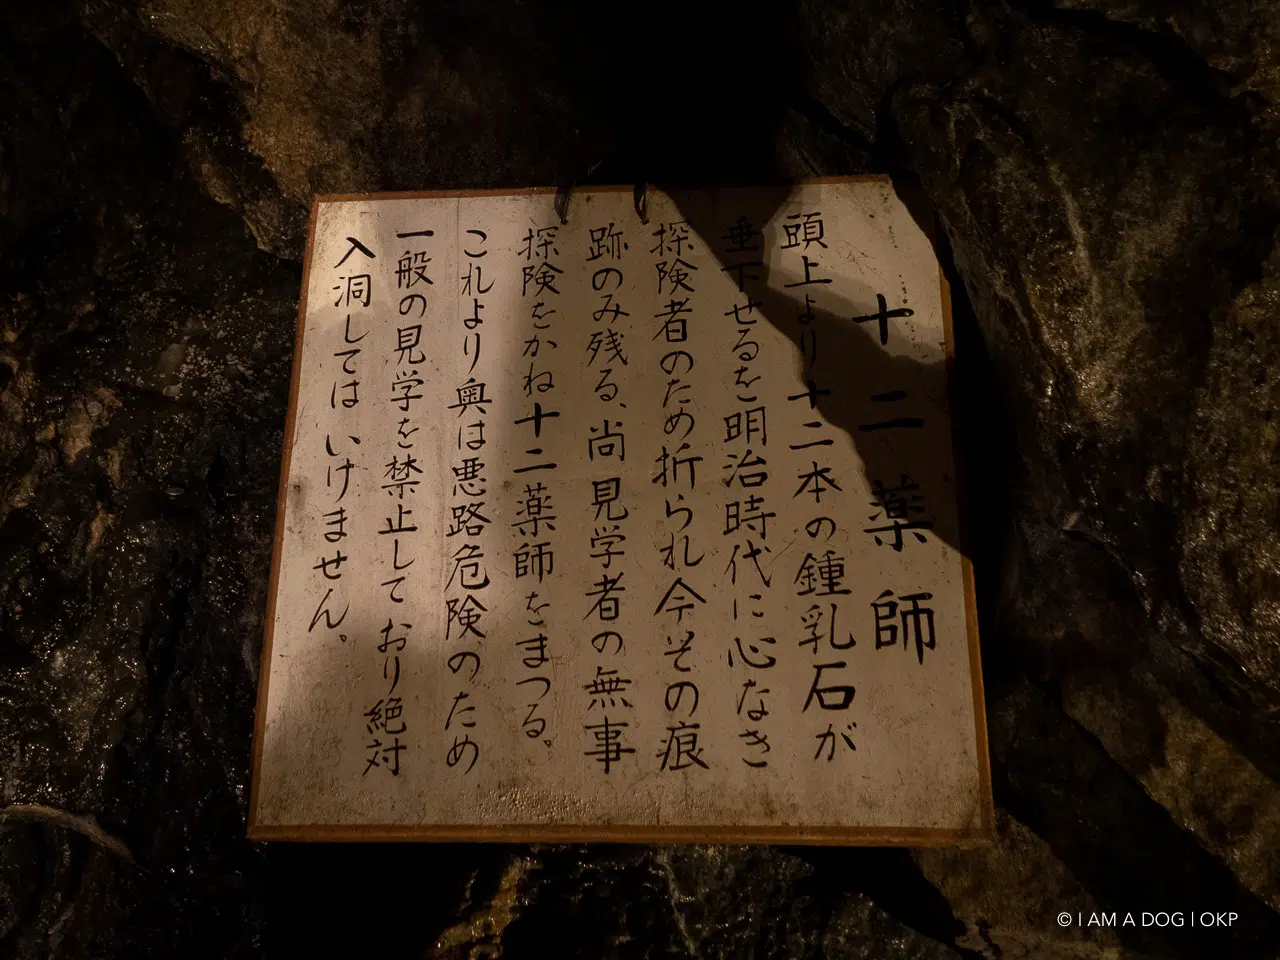 十二薬師
頭上より十二本の鍾乳石が
垂下せるを明治時代に心なき
探険者のため折られ今その痕
跡のみ残る、尚見学者の無事
探険をかね十二薬師をまつる。
これより奥は悪路危険のため
一般の見学を禁止しており絶対
入洞してはいけません。
© I AM A DOG | OKP